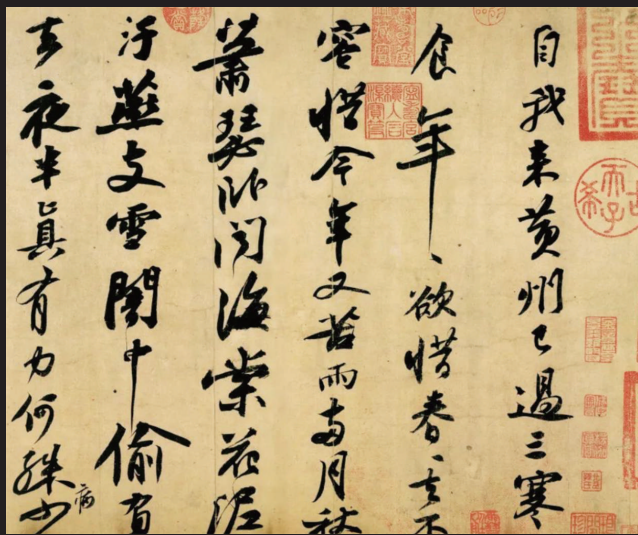 自我来黄州已過三寒
食年〻欲惜春〻去不
容惜今年又苦雨兩月秋
蕭瑟卧聞海棠花泥
汙燕支雪闇中偷負
去夜半真有力何殊少
病
天子
古希